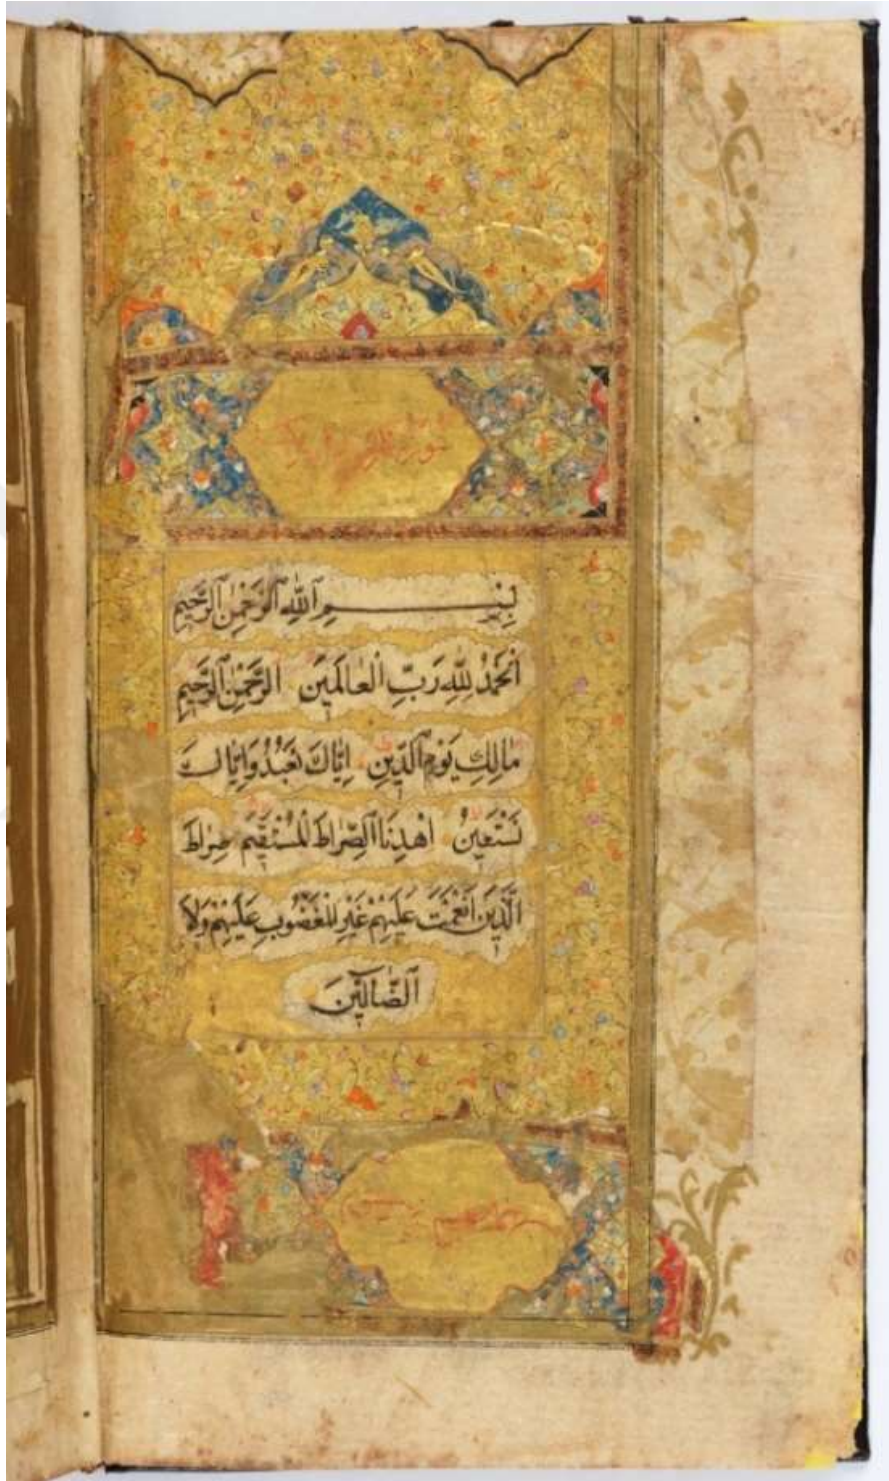 بِسْمِ ٱللَّهِ ٱلرَّحْمٰنِ ٱلرَّحِيمِ
اَلْحَمْدُ لِلّٰهِ رَبِّ الْعَالَمِينَ الرَّحْمٰنِ ٱلرَّحِيمِ
مَالِكِ يَوْمِ ٱلدِّينِ اِيَّاكَ نَعْبُدُ وَاِيَّاكَ
نَسْتَعِينُ اهْدِنَا ٱلصِّرَاطَ الْمُسْتَقِيمَ صِرَاطَ
الَّذِينَ اَنْعَمْتَ عَلَيْهِمْ غَيْرِ الْمَغْضُوبِ عَلَيْهِمْ وَلَا
ٱلضَّالِّينَ